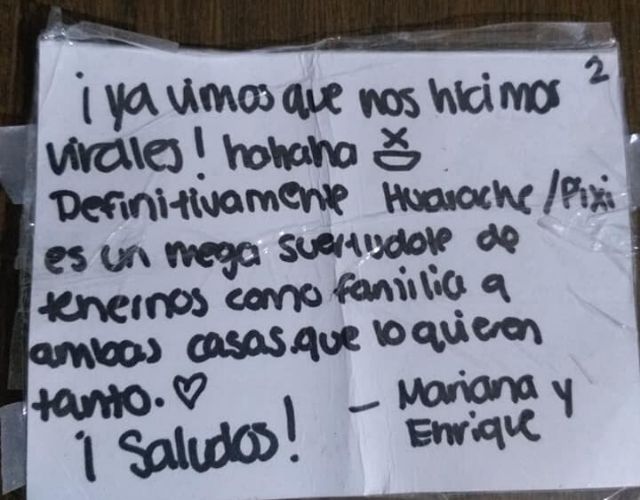 2
¡ya vimos que nos hicimos
virales! hahaha
Definitivamente Huarache/Pixi
es un mega suertudote de
tenernos como familia a
ambas casas.que lo quieren
tanto. ♡
¡Saludos! - Mariana y
Enrique